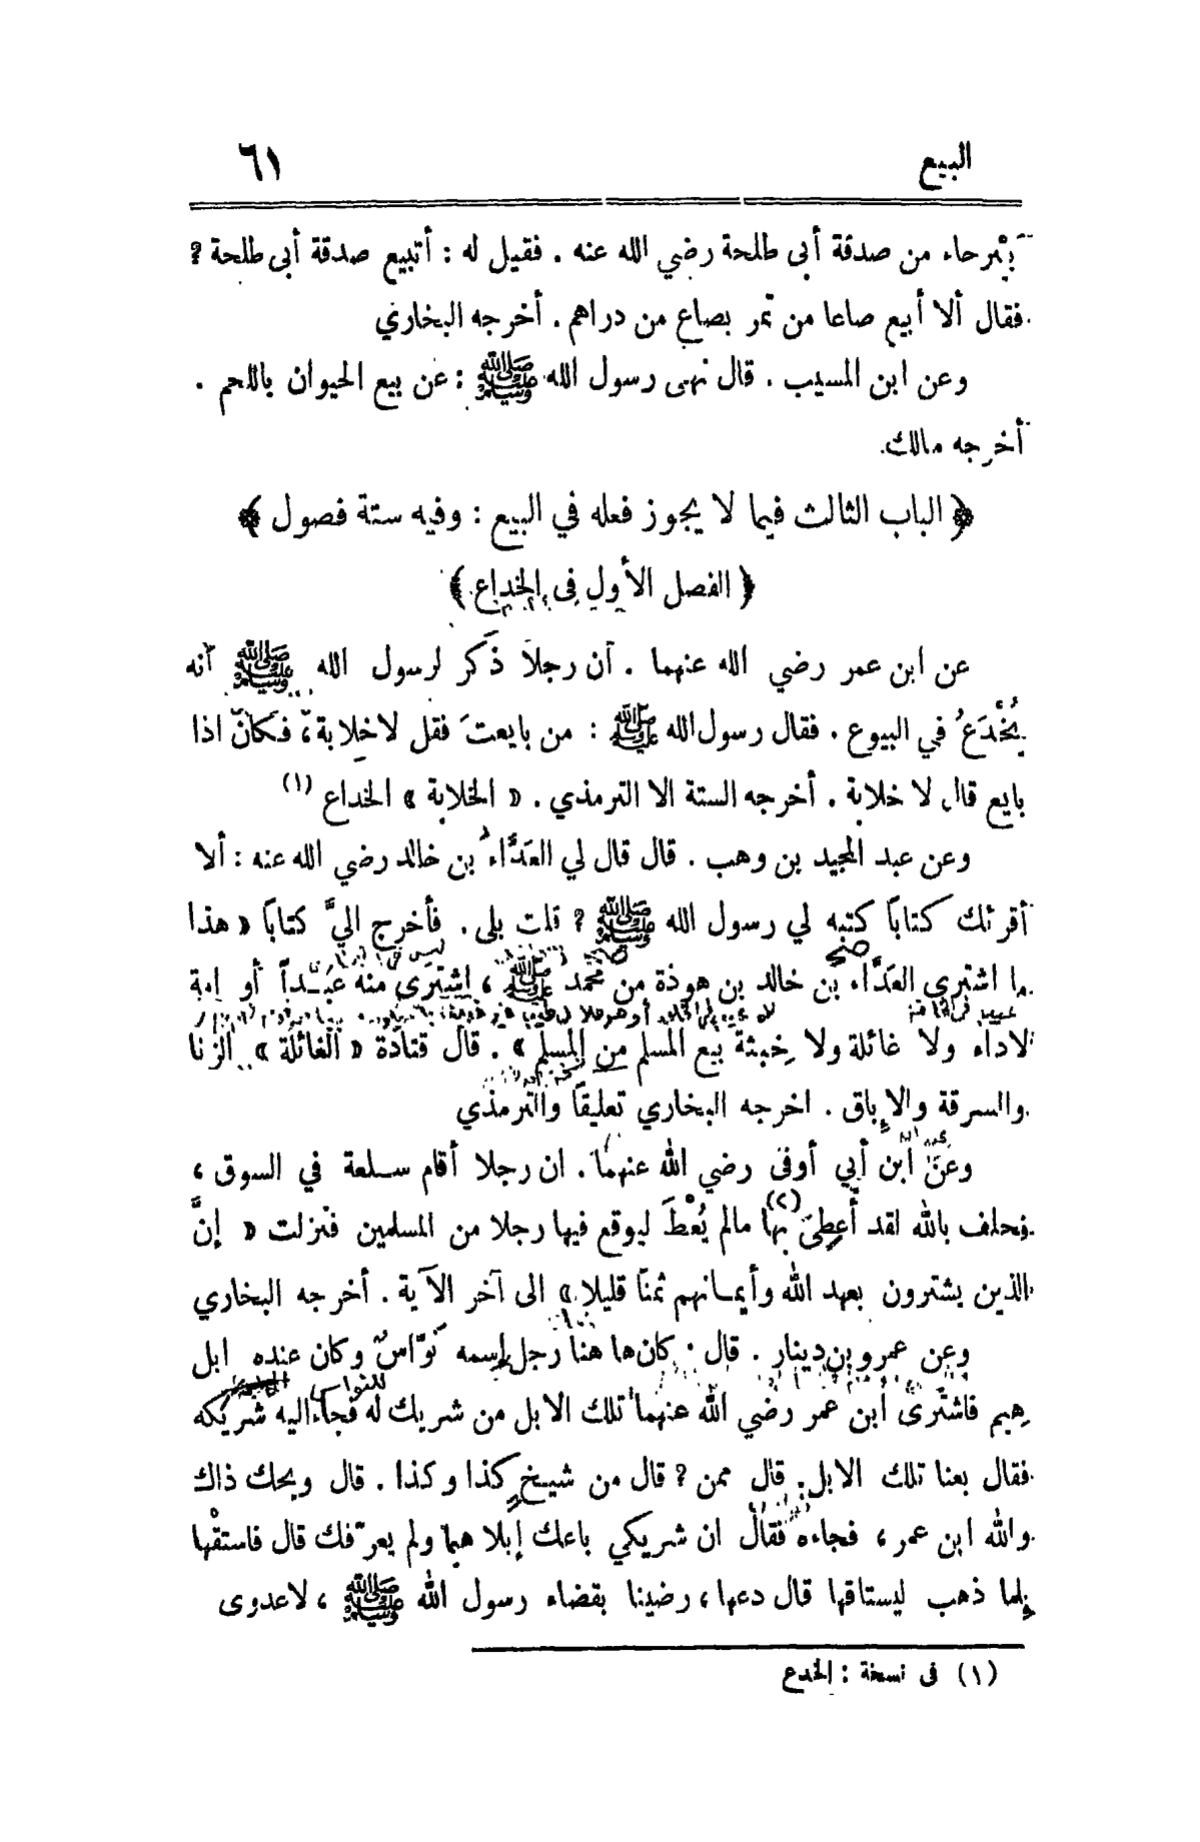 البيع
٦١
بَيْرحاء من صدقة أبى طلحة رضي الله عنه . فقيل له : أتبيع صدقة أبى طلحة ؟
فقال ألا أبيع صاعا من تمر بصاع من دراهم . أخرجه البخاري
وعن ابن المسيب . قال نهى رسول الله ﷺ : عن بيع الحيوان باللحم .
أخرجه مالك.
﴿ الباب الثالث فيما لا يجوز فعله في البيع : وفيه ستة فصول ﴾
﴿ الفصل الأول فى الخداع ﴾
عن ابن عمر رضي الله عنهما . أن رجلا ذَكر لرسول الله ﷺ أنه
يُخْدَعُ في البيوع . فقال رسول الله ﷺ : من بايعتَ فقل لا خِلابة ، فكان اذا
بايع قال لا خلابة . أخرجه الستة الا الترمذي . « الخلابة » الخداع (١)
وعن عبد المجيد بن وهب . قال قال لي العَدَّاء بن خالد رضي الله عنه : ألا
أقرئك كتاباً كتبه لي رسول الله ﷺ ؟ قلت بلى . فأخرج اليَّ كتاباً « هذا
ما اشترى العَدَّاء بن خالد بن هوذة من محمد ﷺ ، اشترى منه عَبْداً أو امة
لاداء ولا غائلة ولا خِبثة بيع المسلم من المسلم » . قال قتادة « الغائلة » الزنا
والسرقة والإباق . اخرجه البخاري تعليقاً والترمذي
وعن ابن أبي أوفى رضي الله عنهما . ان رجلا أقام سلعة في السوق ،
فحلف بالله لقد أُعطِيَ بها (٢) مالم يُعْطَ ليوقع فيها رجلا من المسلمين فنزلت « إنَّ
الذين يشترون بعهد الله وأيمانهم ثمناً قليلا » الى آخر الآية . أخرجه البخاري
وعن عمرو بن دينار . قال : كان ها هنا رجل اسمه نَوَّاس وكان عنده ابل
هِيم فاشترى ابن عمر رضي الله عنهما تلك الابل من شريك له فجاء اليه شريكه
فقال بعنا تلك الابل . قال ممن ؟ قال من شيخ كذا وكذا . قال ويحك ذاك
والله ابن عمر ، فجاءه فقال ان شريكي باعك إبلا هيما ولم يعرّفك قال فاستقْها
فلما ذهب ليستاقها قال دعها ، رضينا بقضاء رسول الله ﷺ ، لاعدوى
(١) فى نسخة : الخدع